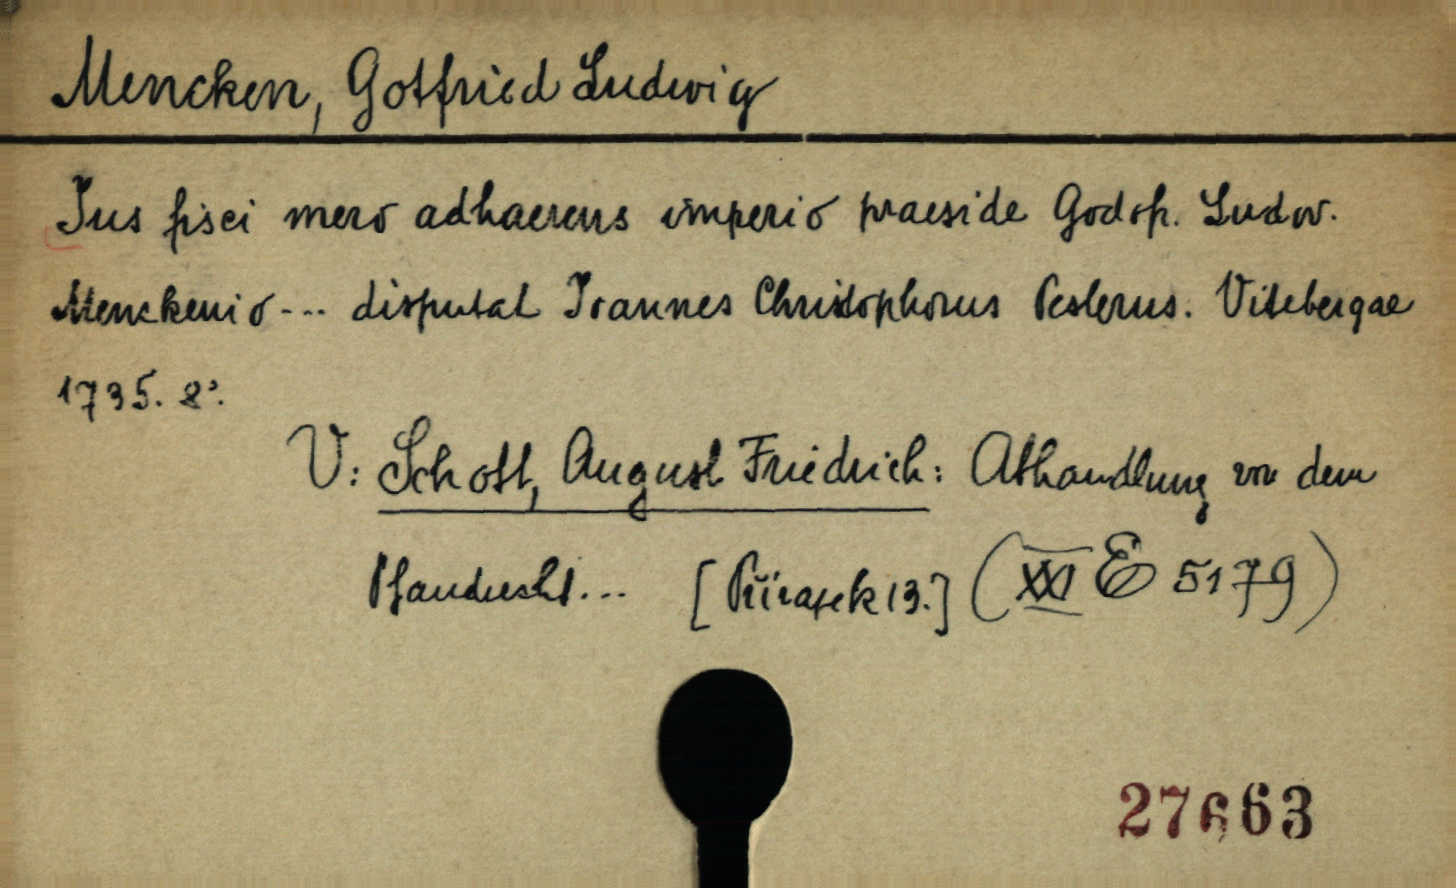 Mencken, Gotfried Ludwig
Ius fisci mero adhaerens imperio praeside Godofr. Ludov.
Menckenio... disputat Ioannes Christophorus Peslerus. Vitebergae
1735. 8°.
V: Schott, August Friedrich: Abhandlung von dem
Pfandrecht... [Přírasek 13.] (XXI E 5179)
27663